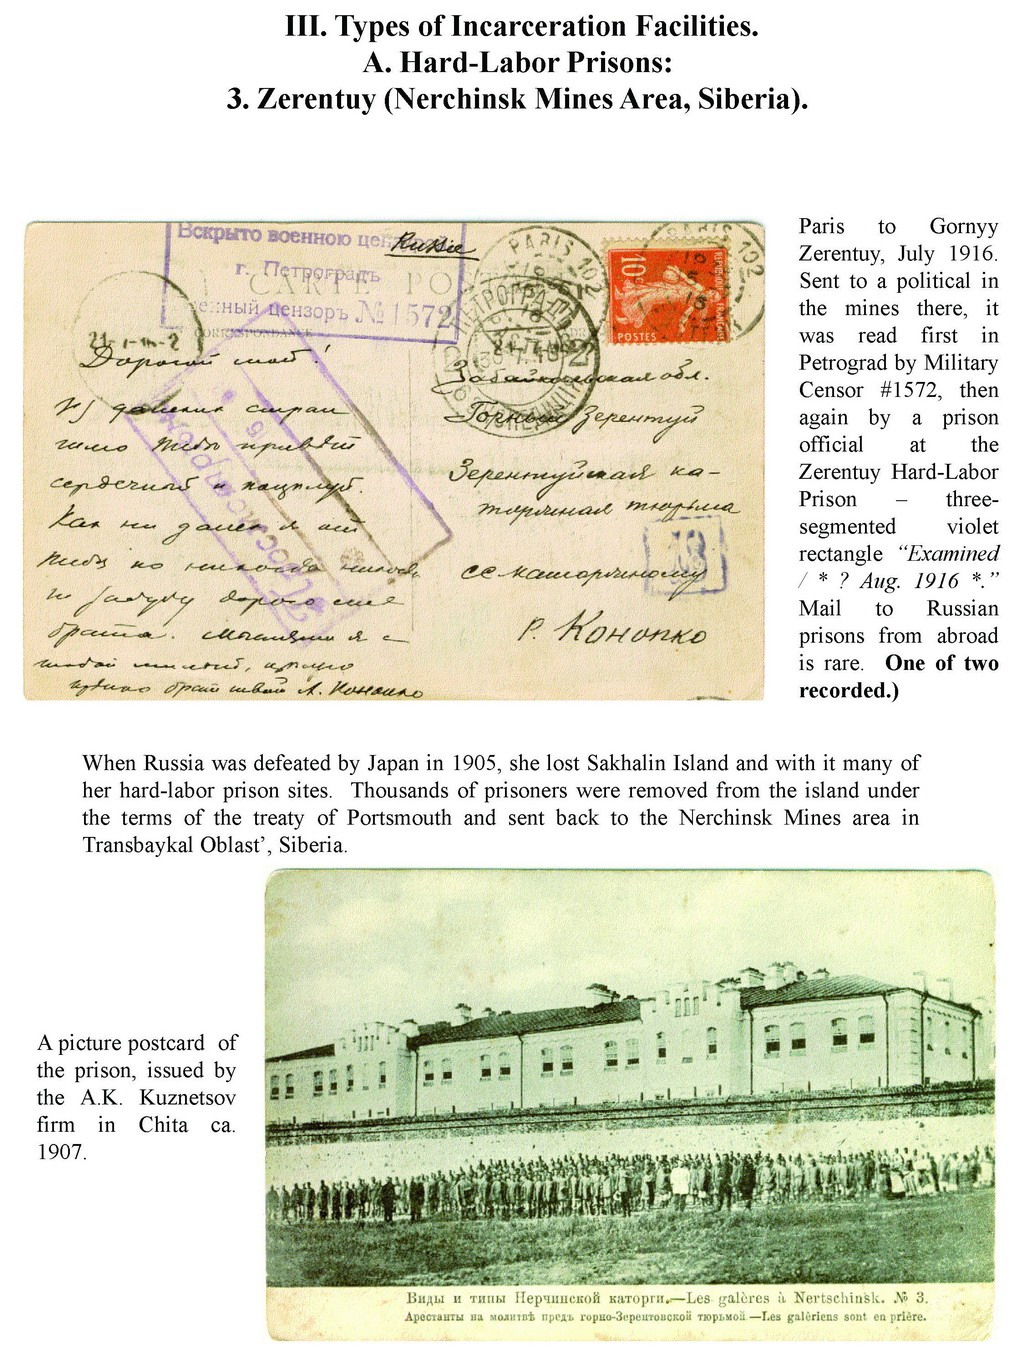 III. Types of Incarceration Facilities.
A. Hard-Labor Prisons:
3. Zerentuy (Nerchinsk Mines Area, Siberia).
Вскрыто военною
г. Петроградъ
военный цензоръ № 1572
Russie
CARTE PO
CORRESPONDANCE
PARIS 102
PARIS 102
10c
POSTES
ПЕТРОГРАДЪ
Дорогой мой!
Из далеких стран
шлю тебе привет
сердечный и поцелуй.
Как ни далек я от
тебя но никогда никогда
не забуду дорогого мне
брата. Мысленно я с
тобой милый,
брат твой А. Конопко
Забайкальская обл.
Горный Зерентуй
Зерентуйская ка-
торжная тюрьма
сс-каторжному
Р. Конопко
Paris to Gornyy
Zerentuy, July 1916.
Sent to a political in
the mines there, it
was read first in
Petrograd by Military
Censor #1572, then
again by a prison
official at the
Zerentuy Hard-Labor
Prison – three-
segmented violet
rectangle “Examined
/ * ? Aug. 1916 *.”
Mail to Russian
prisons from abroad
is rare. One of two
recorded.)
When Russia was defeated by Japan in 1905, she lost Sakhalin Island and with it many of
her hard-labor prison sites. Thousands of prisoners were removed from the island under
the terms of the treaty of Portsmouth and sent back to the Nerchinsk Mines area in
Transbaykal Oblast’, Siberia.
A picture postcard of
the prison, issued by
the A.K. Kuznetsov
firm in Chita ca.
1907.
Виды и типы Нерчинской каторги.—Les galères à Nertschinsk. № 3.
Арестанты на молитвѣ предъ горно-Зерентовской тюрьмой.—Les galériens sont en prière.